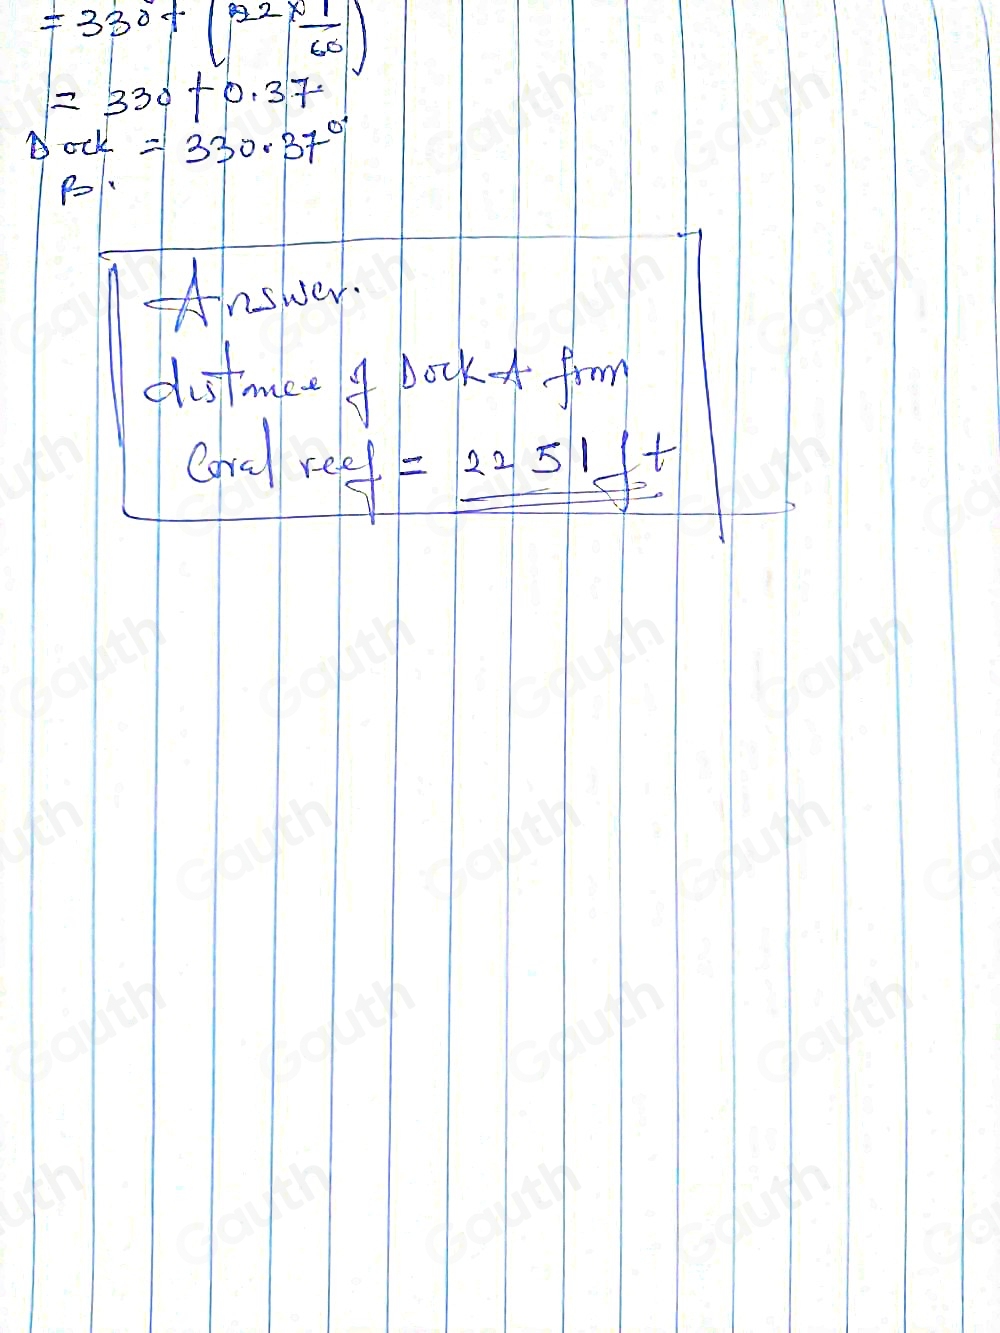 = 330 + (22 × 1/60)
= 330 + 0.37
Dock = 330.37°
B.
Answer.
distance of Dock A from
Coral reef = 2251 ft
Gauth